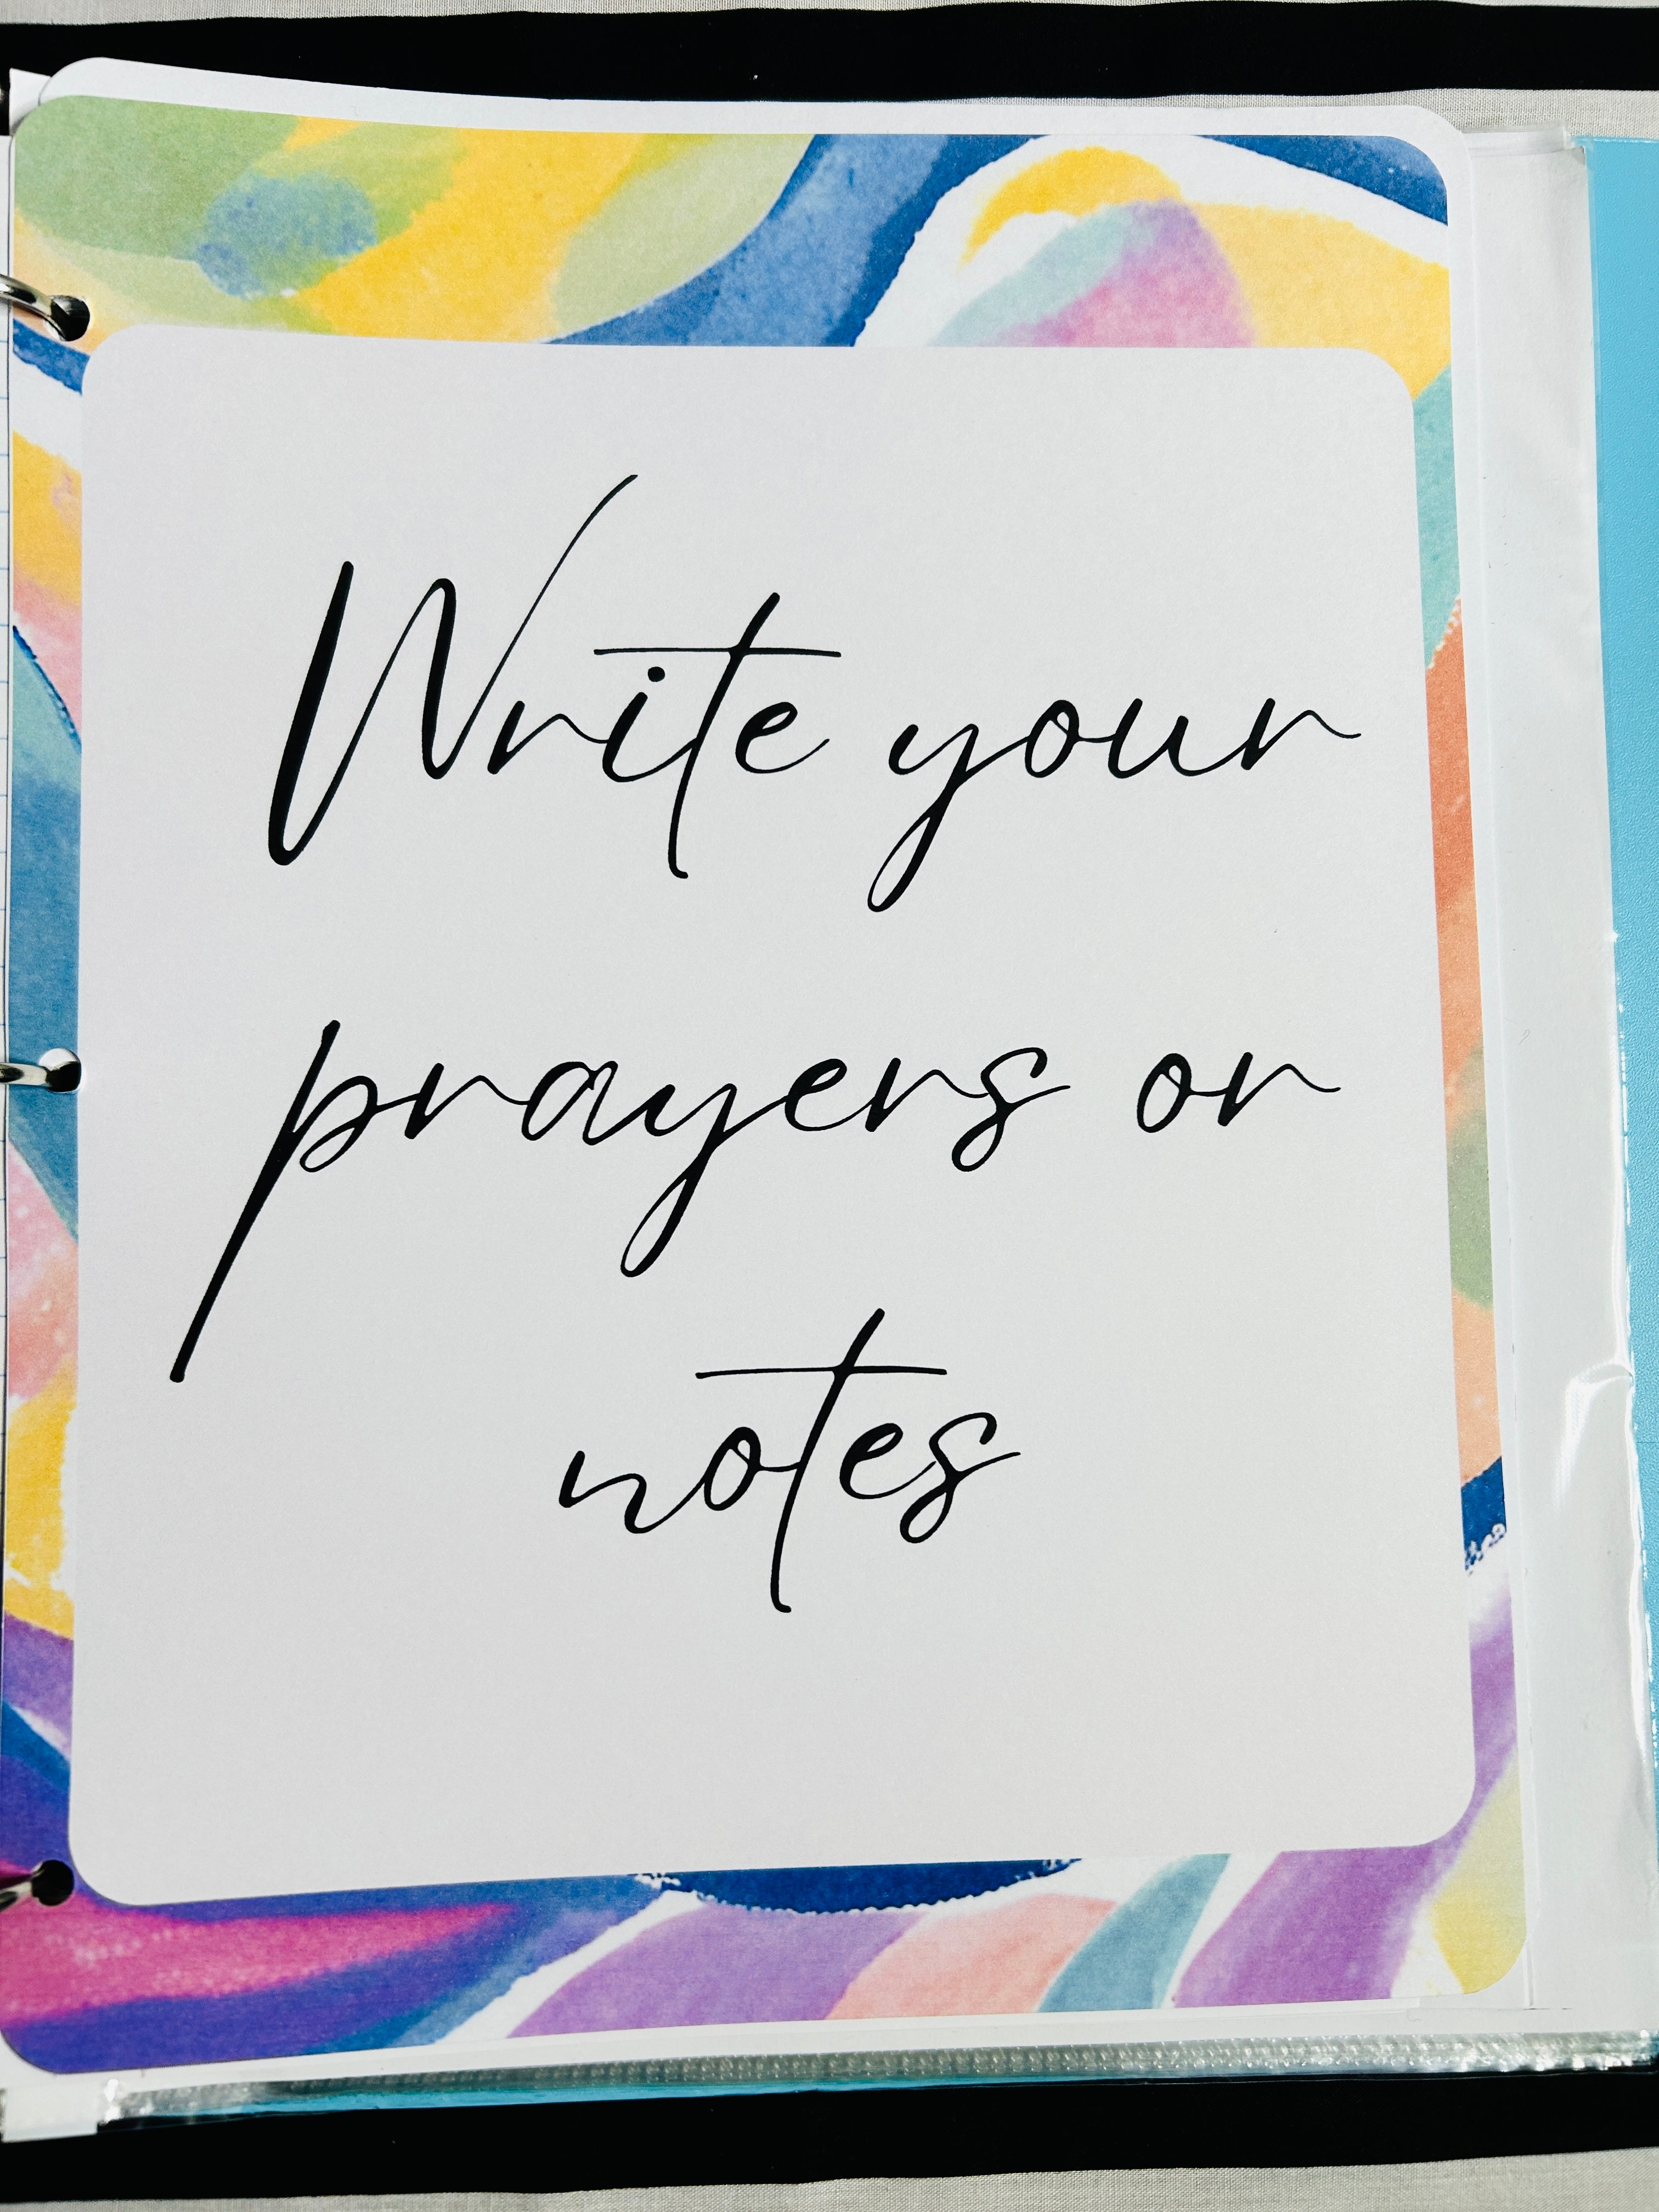 Write your
prayers or
notes